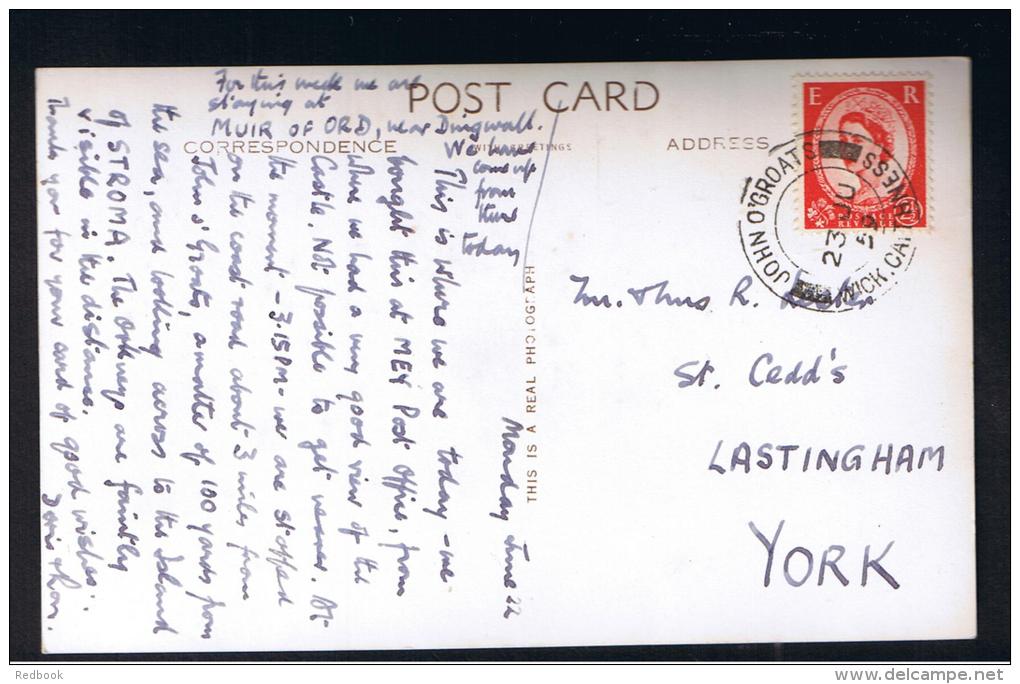 For this week we are
staying at
MUIR OF ORD, near Dingwall.
We have
come up
from
there
today
POST CARD
WITH GREETINGS
CORRESPONDENCE
ADDRESS
THIS IS A REAL PHOTOGRAPH
Monday June 22
This is where we are today - we
bought this at MEY Post Office, from
where we had a very good view of the
Castle. Not possible to get nearer. At
the moment - 3.15PM - we are stopped
on the coast road about 3 miles from
John o' Groats, a matter of 100 yards from
the sea, and looking across to the Island
of STROMA. The Orkneys are faintly
visible in the distance.
Thank you for your card of good wishes.
Doris & Ron.
E R
POSTAGE
REVENUE
JOHN O'GROATS
23 JU
59
WICK. CAITHNESS
Mr. & Mrs R.
St. Cedd's
LASTINGHAM
YORK
Redbook
www.delcampe.net